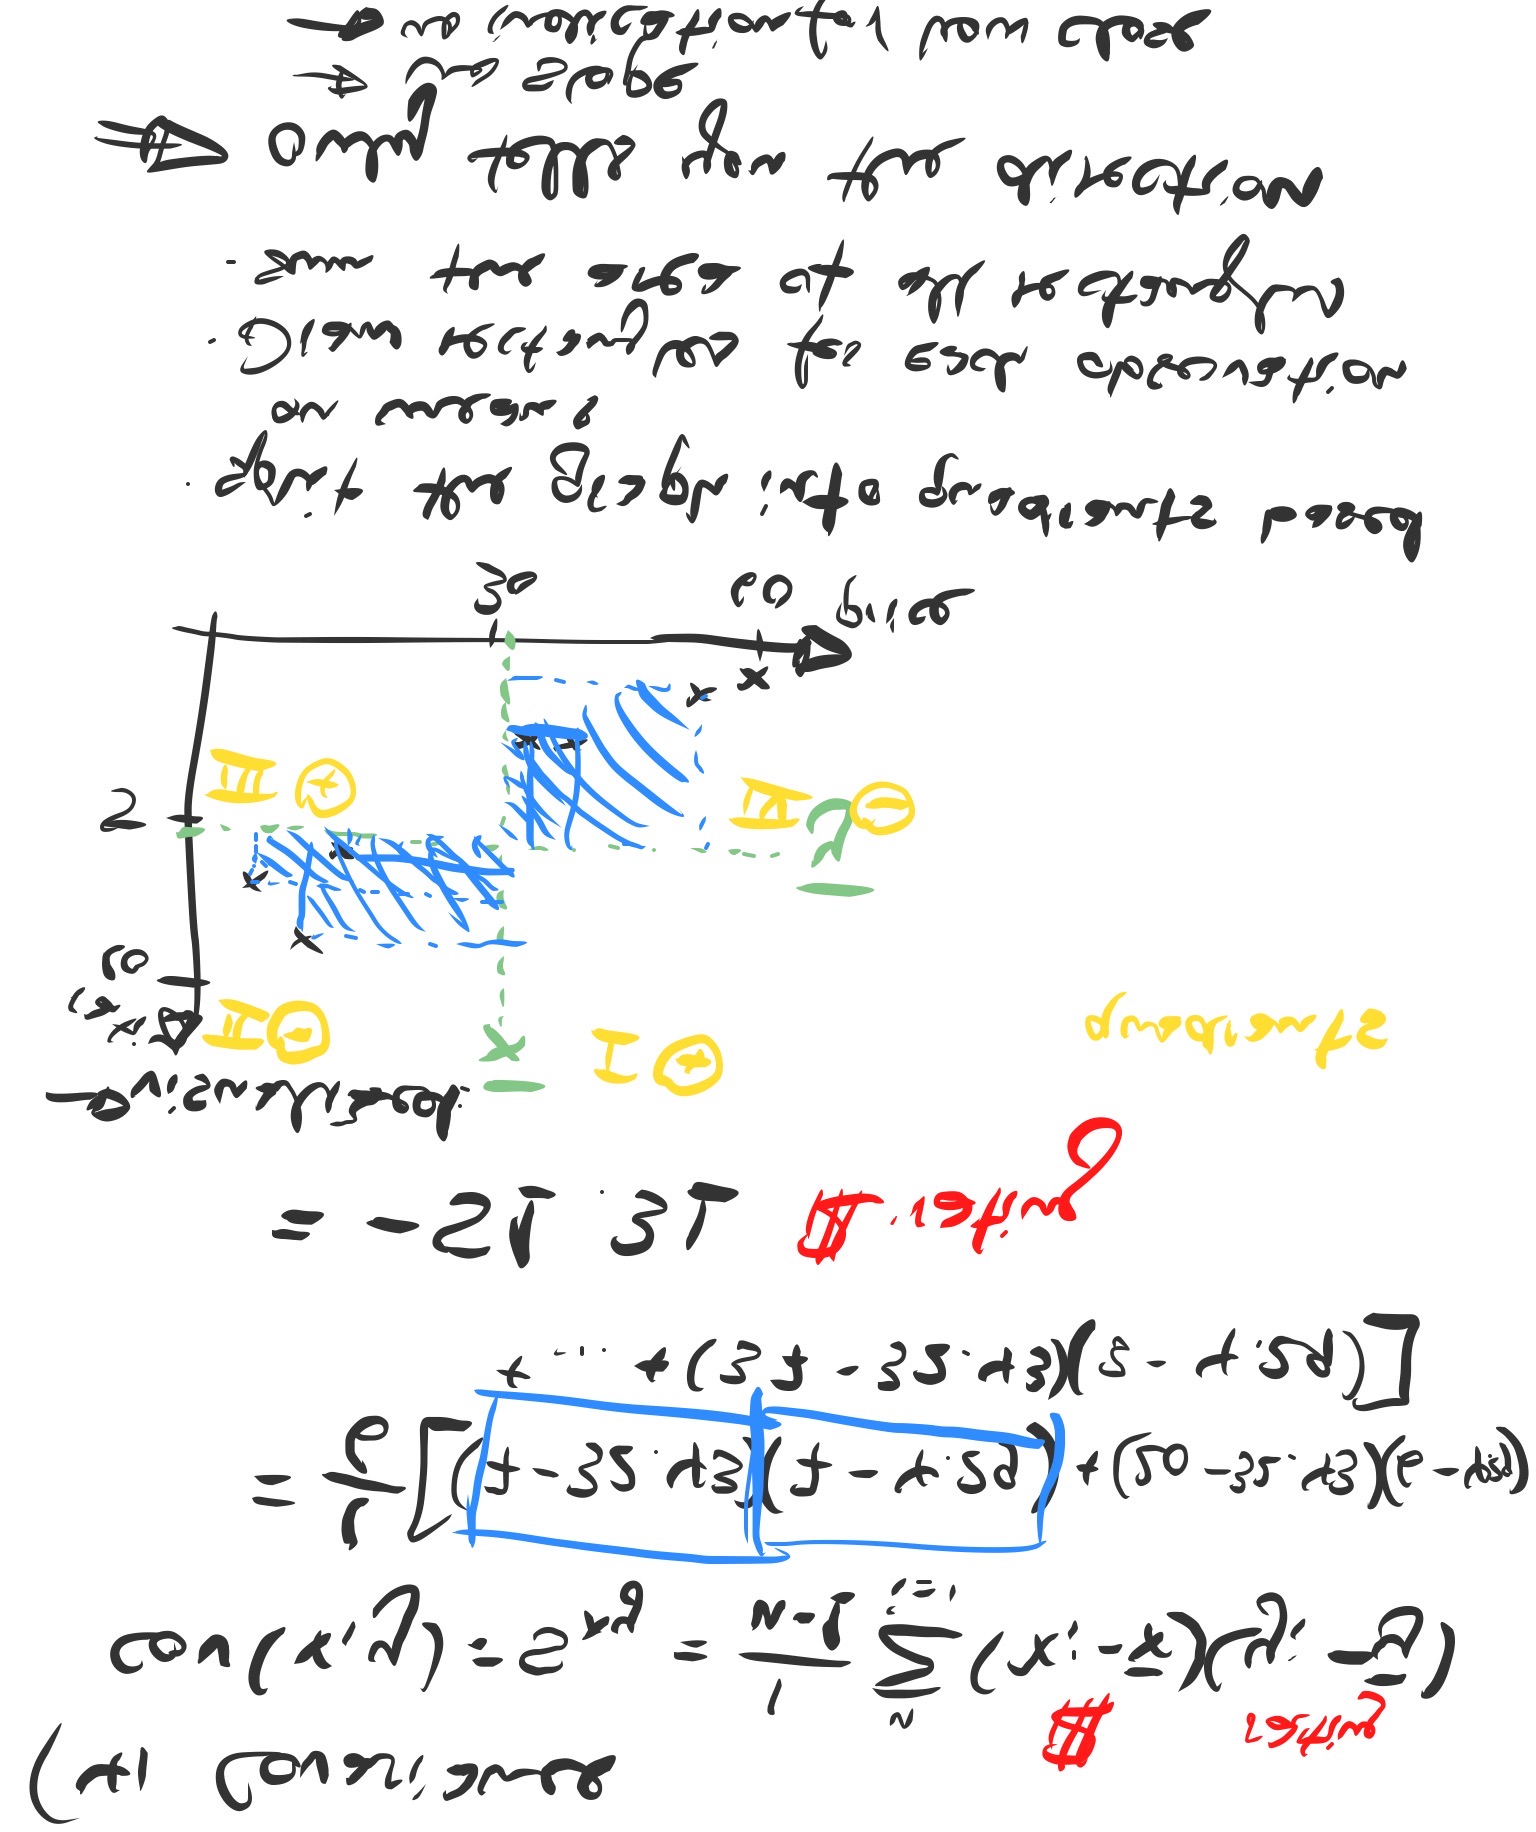 (4) Covariance
$ rating
cov(x,y) = s_xy = 1/(n-1) Σ_{i=1}^{n} (x_i - x̄)(y_i - ȳ)
= 1/6 [(7 - 32.43)(7 - 4.29) + (20 - 32.43)(6 - 4.29)
+ ... + (37 - 32.43)(3 - 4.29)]
= -51.31 $·rating
→ visualized:
II ⊖ x̄ I ⊕ quadrants
10
5
III ⊕ IV ⊖ ȳ
30 60 price
· split the graph into quadrants based
on means
· Draw rectangles for each observation
· sum the area of all rectangles
⇒ only tells you the direction
→ no slope
→ no indication for how close